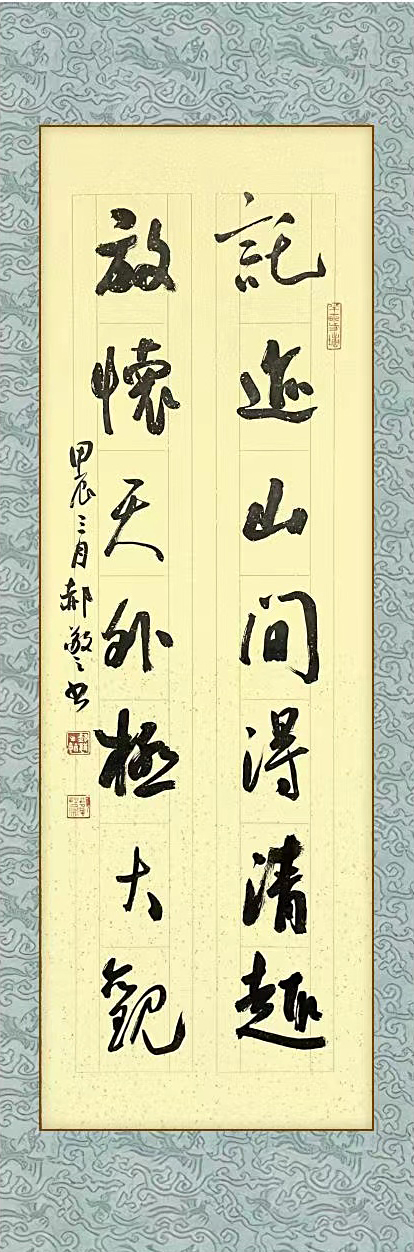 託迹山間得清趣
放懷天外極大觀
甲辰三月郝敬之書